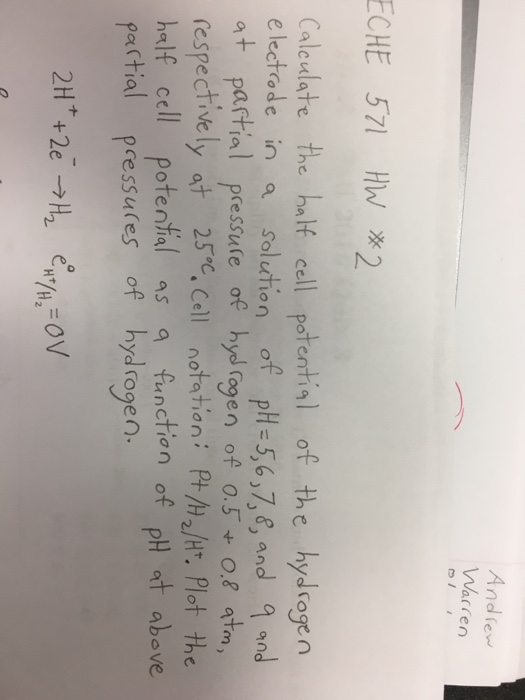 Andrew
Warren
ECHE 571 HW #2
Calculate the half cell potential of the hydrogen
electrode in a solution of pH=5,6,7,8, and 9 and
at partial pressure of hydrogen of 0.5 + 0.8 atm,
respectively at 25°C. Cell notation: Pt/H₂/H⁺. Plot the
half cell potential as a function of pH at above
partial pressures of hydrogen.
2H⁺ + 2e⁻ → H₂ e°H⁺/H₂ = 0V